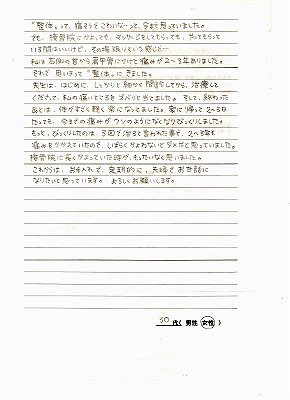 "整体"って、痛そうでこわいなーって、今まで思っていました。
でも、接骨院にかよっても、マッサージをしてもらっても、やってもらって
いる間はいいけど、その場限りという感じ…
私は右側の首から肩甲骨にかけて痛みが2〜3年ありました。
それで思いきって"整体"にきました。
先生は、はじめに しっかりと細かく問診してから、治療して
くださって、私の痛いところをズバリと当てました。そして、終わった
あとは、体がすごく軽く楽になってました。家に帰って2〜3日
たっても、今までの痛みがウソのようになくなりびっくりしました。
もっと、びっくりしたのは、3回で治ると言われた事で、2〜3年も
痛みをかかえていたので、しばらくかよわないとダメだと思っていました。
接骨院に長くかよっていた時が、もったいなく思いました。
これからは、お手入れで、定期的に、夫婦でお世話に
なりたいと思っています。よろしくお願いします。
30代( 男性 女性 )